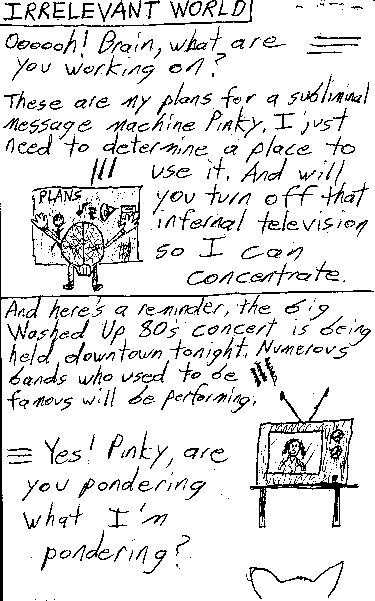 IRRELEVANT WORLD
Oooooh! Brain, what are
you working on?
These are my plans for a subliminal
message machine Pinky. I just
need to determine a place to
use it. And will
you turn off that
infernal television
so I can
concentrate.
PLANS
And here's a reminder, the big
Washed Up 80s concert is being
held downtown tonight. Numerous
bands who used to be
famous will be performing.
Yes! Pinky, are
you pondering
what I'm
pondering?